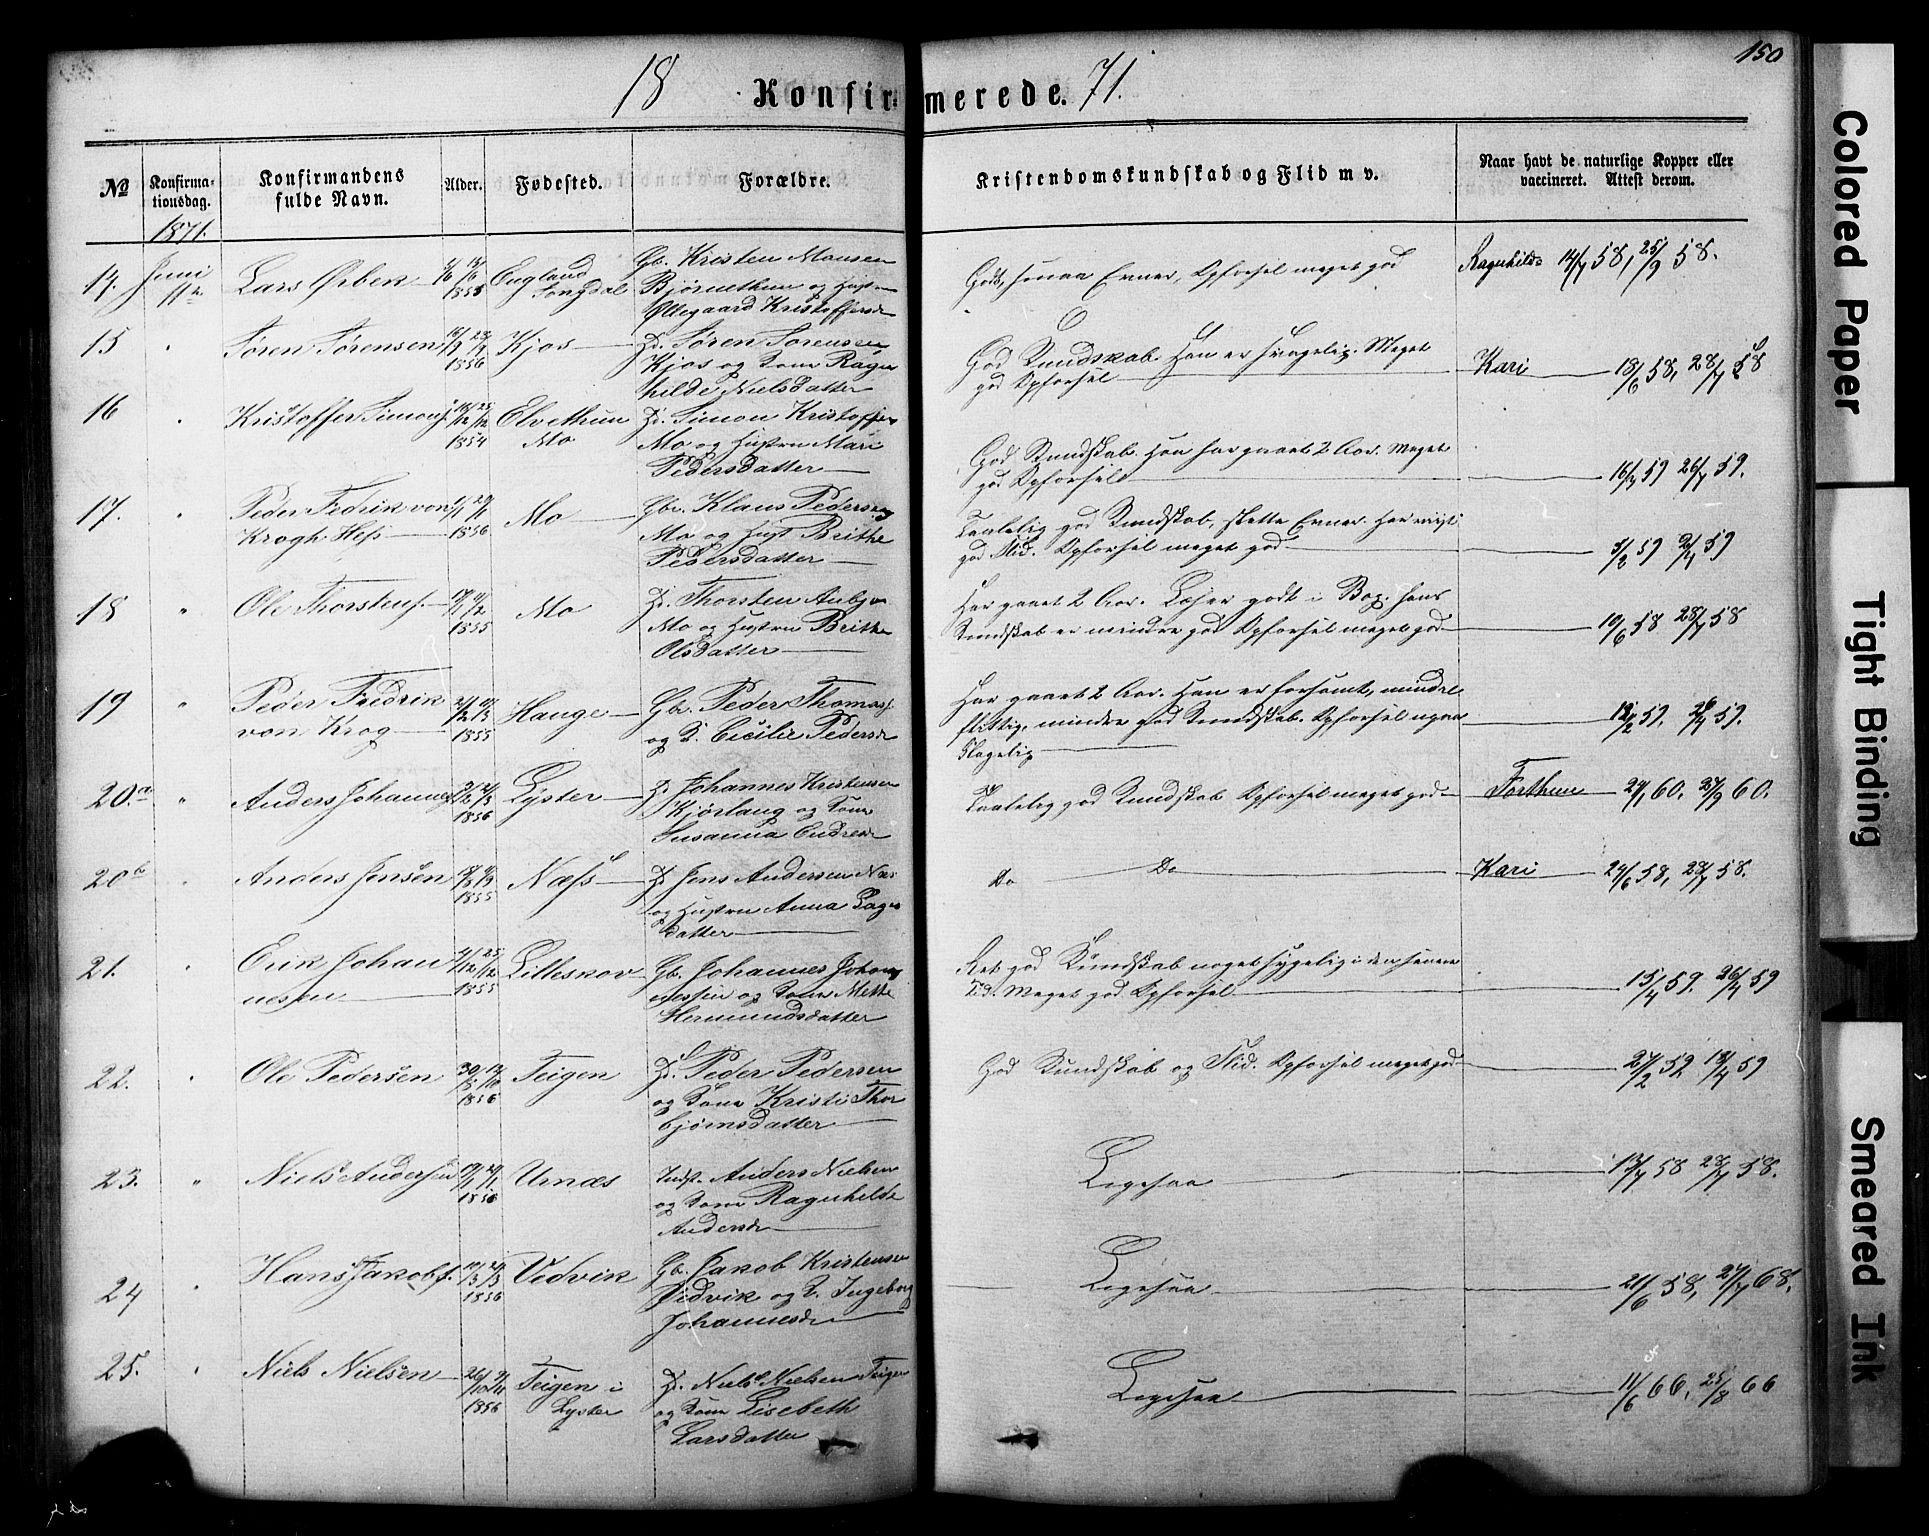 18 Konfirmerede. 71.
150
No
Konfirmationsdag.
Konfirmandens fulde Navn.
Alder.
Fødested.
Forældre.
Kristendomskundskab og Flid m v.
Naar havt de naturlige Kopper eller vaccineret. Attest derom.
1871.
14. Juni Lars Ørbek 1855 England Gb. Kristen Monsen
11te Songdal Bjørnethun og Hust
Øllegaard Kristoffersd
God, Evner, Opførsel meget god
Ragnhild 58, 25/9 58.
15 " Søren Sørensen 1856 Kjos Hd. Søren Sørensen
Kjos og Kone Ragn
hilde Nielsdatter
God Kundskab. Han er svagelig. Meget
god Opførsel
Kari 18/6 58, 28/7 58
16 " Kristoffer Simons. 1854 Elvethun Hd. Simon Kristoffers
Mo Mo og Hustru Mari
Pedersdatter
God Kundskab. Han har gaaet 2 Aar. Meget
god Opførsel
16/7 59 26/7 59.
17. " Peder Fedrik von 1856 Mo Gbr. Klaus Peders
Krogh Hess Mo og Hust Brithe
Pedersdatter
Taalelig god Kundskab, slette Evner. Har viist
god Flid. Opførsel meget god
59 59
18 " Ole Thorstens. 1855 Mo Hd. Thorsten Anbjø
Mo og Hustru Brithe
Olsdatter
Har gaaet 2 Aar. Læser godt i Bog. hans
Kundskab er mindre god Opførsel meget god
10/6 58 28/7 58
19 " Peder Fredrik 1855 Hauge Gb. Peder Thomas.
von Krog og K. Cicilie Pedersd
Har gaaet 2 Aar. Han er forsømt, mindre
flittig, mindre god Kundskab. Opførsel upaa
klagelig
59. 59.
20.a " Anders Johannes. 1856 Lyster Hd Johannes Kristensen
Kjørlaug og Kone
Susanna Endresd
Taalelig god Kundskab Opførsel meget god
Forthun 60. 27/9 60.
20b " Anders Jensen 1855 Næss Hd Jens Andersen Næs
og Hustru Anna Lage
datter
Do Do
Kari 24/6 58, 28/7 58.
21. " Erik Johan 1855 Lilleskov Gb. Johannes Johan
nesen nesen og Kone Mette
Hermundsdatter
Ret god Kundskab noget sygelig i den senere
Tid. Meget god Opførsel
15/4 59. 26/4 59
22. " Ole Pedersen 1856 Teigen Hd. Peder Pedersen
og Kone Kristi Thor
bjørnsdatter
God Kundskab og Flid. Opførsel meget god
27/2 59 18/4 59
23. " Niels Andersen 1856 Urnæs Indst. Anders Nielsen
og Kone Ragnhilde
Andersd
Ligesaa
13/7 58 28/7 58.
24 " Hans Jakobs. 1856 Vedvik Gb. Jakob Kristensen
Vidvik og K. Ingeborg
Johannesd
Ligesaa
21/6 58, 27/7 68.
25. " Niels Nielsen 1856 Teigen i Hd. Niels Nielsen Teigen
Lyster og Kone Lisebeth
Larsdatter
Ligesaa
11/6 66, 25/8 66
Colored Paper
Tight Binding
Smeared Ink